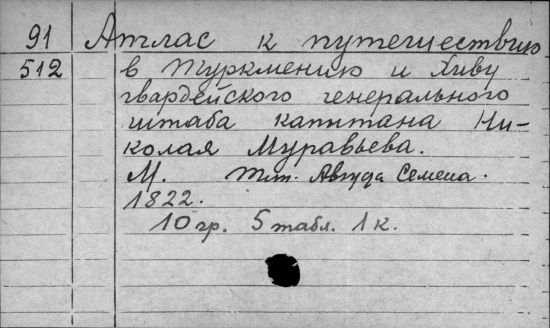 91 Атлас к путешествию
512 в Туркмению и Хиву
гвардейского генерального
штаба капитана Ни-
колая Муравьева.
М. Тип. Августа Семена.
1822.
10 гр. 5 табл. 1 к.